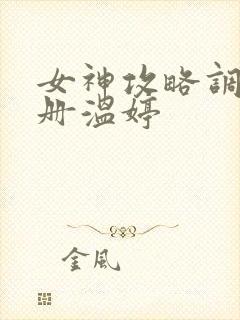 女神攻略調
册温婷
金風